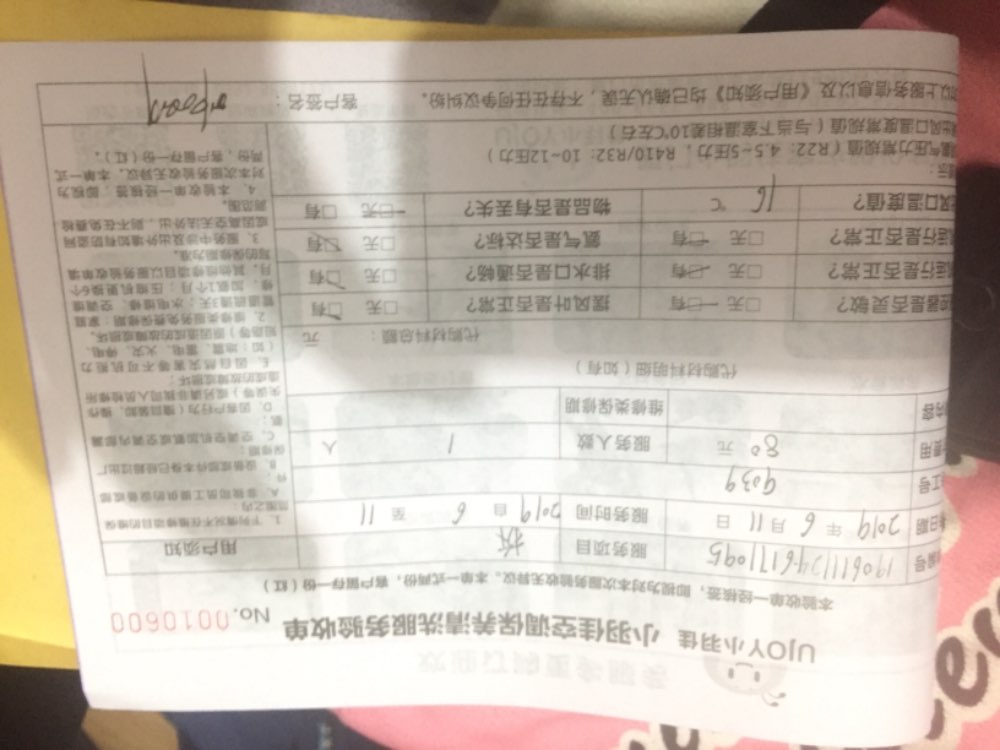 UJOY小羽佳 小羽佳空调保养清洗服务验收单
No. 0010600
本验收单一经核签，即视为对本次服务验收无异议。本单一式两份，客户留存一份（红）
编号 服务项目 拆 用户须知
日期 2019 年 6 月 11 日 服务时间 2019 自 6 至 11
工号 9039
费用 80 元 服务人数 1 人
内容 维修类保修期
代购材料明细（如有）
代购材料总额： 元
是否灵敏？ □无 □有 摆风叶是否正常？ □无 □有
运行是否正常？ □无 □有 排水口是否通畅？ □无 □有
运行是否正常？ □无 □有 氨气是否达标？ □无 □有
风口温度值？ 16 ℃ 物品是否有丢失？ □无 □有
气压力常规值（R22：4.5~5压力，R410/R32：10~12压力）
风口温度常规值（与当下室温相差10℃左右）
以上服务信息以及《用户须知》均已确认无误，不存在任何争议纠纷。 客户签名：
1、下列情况不在维修项目的维保
范围之内：
A、非我司员工提供的设备或部
件；
B、设备或部件本身已经超过出厂
保修期；
C、空调空机加氨或空调内部漏
氨；
D、因客户行为（擅自装卸、操作
失误等）或另请非我司人员检修所
造成的故障或损坏；
E、因自然灾害等不可抗力
（如：地震、雷电、火灾、停电、
短路等）原因造成的故障或损坏。
2、维修类服务免费保修期：家庭
管道疏通3天；水电维修、空调维
修、加氨1个月；压缩机更换6个
月，其他维修项目以服务验收单填
写的保修期为准。
3、服务中涉及出外墙如有防盗网
或因高空无法外出，则不在免费检
测范围。
4、本验收单一经核签，即视为
对本次服务验收无异议。本单一式
两份，客户留存一份（红）。